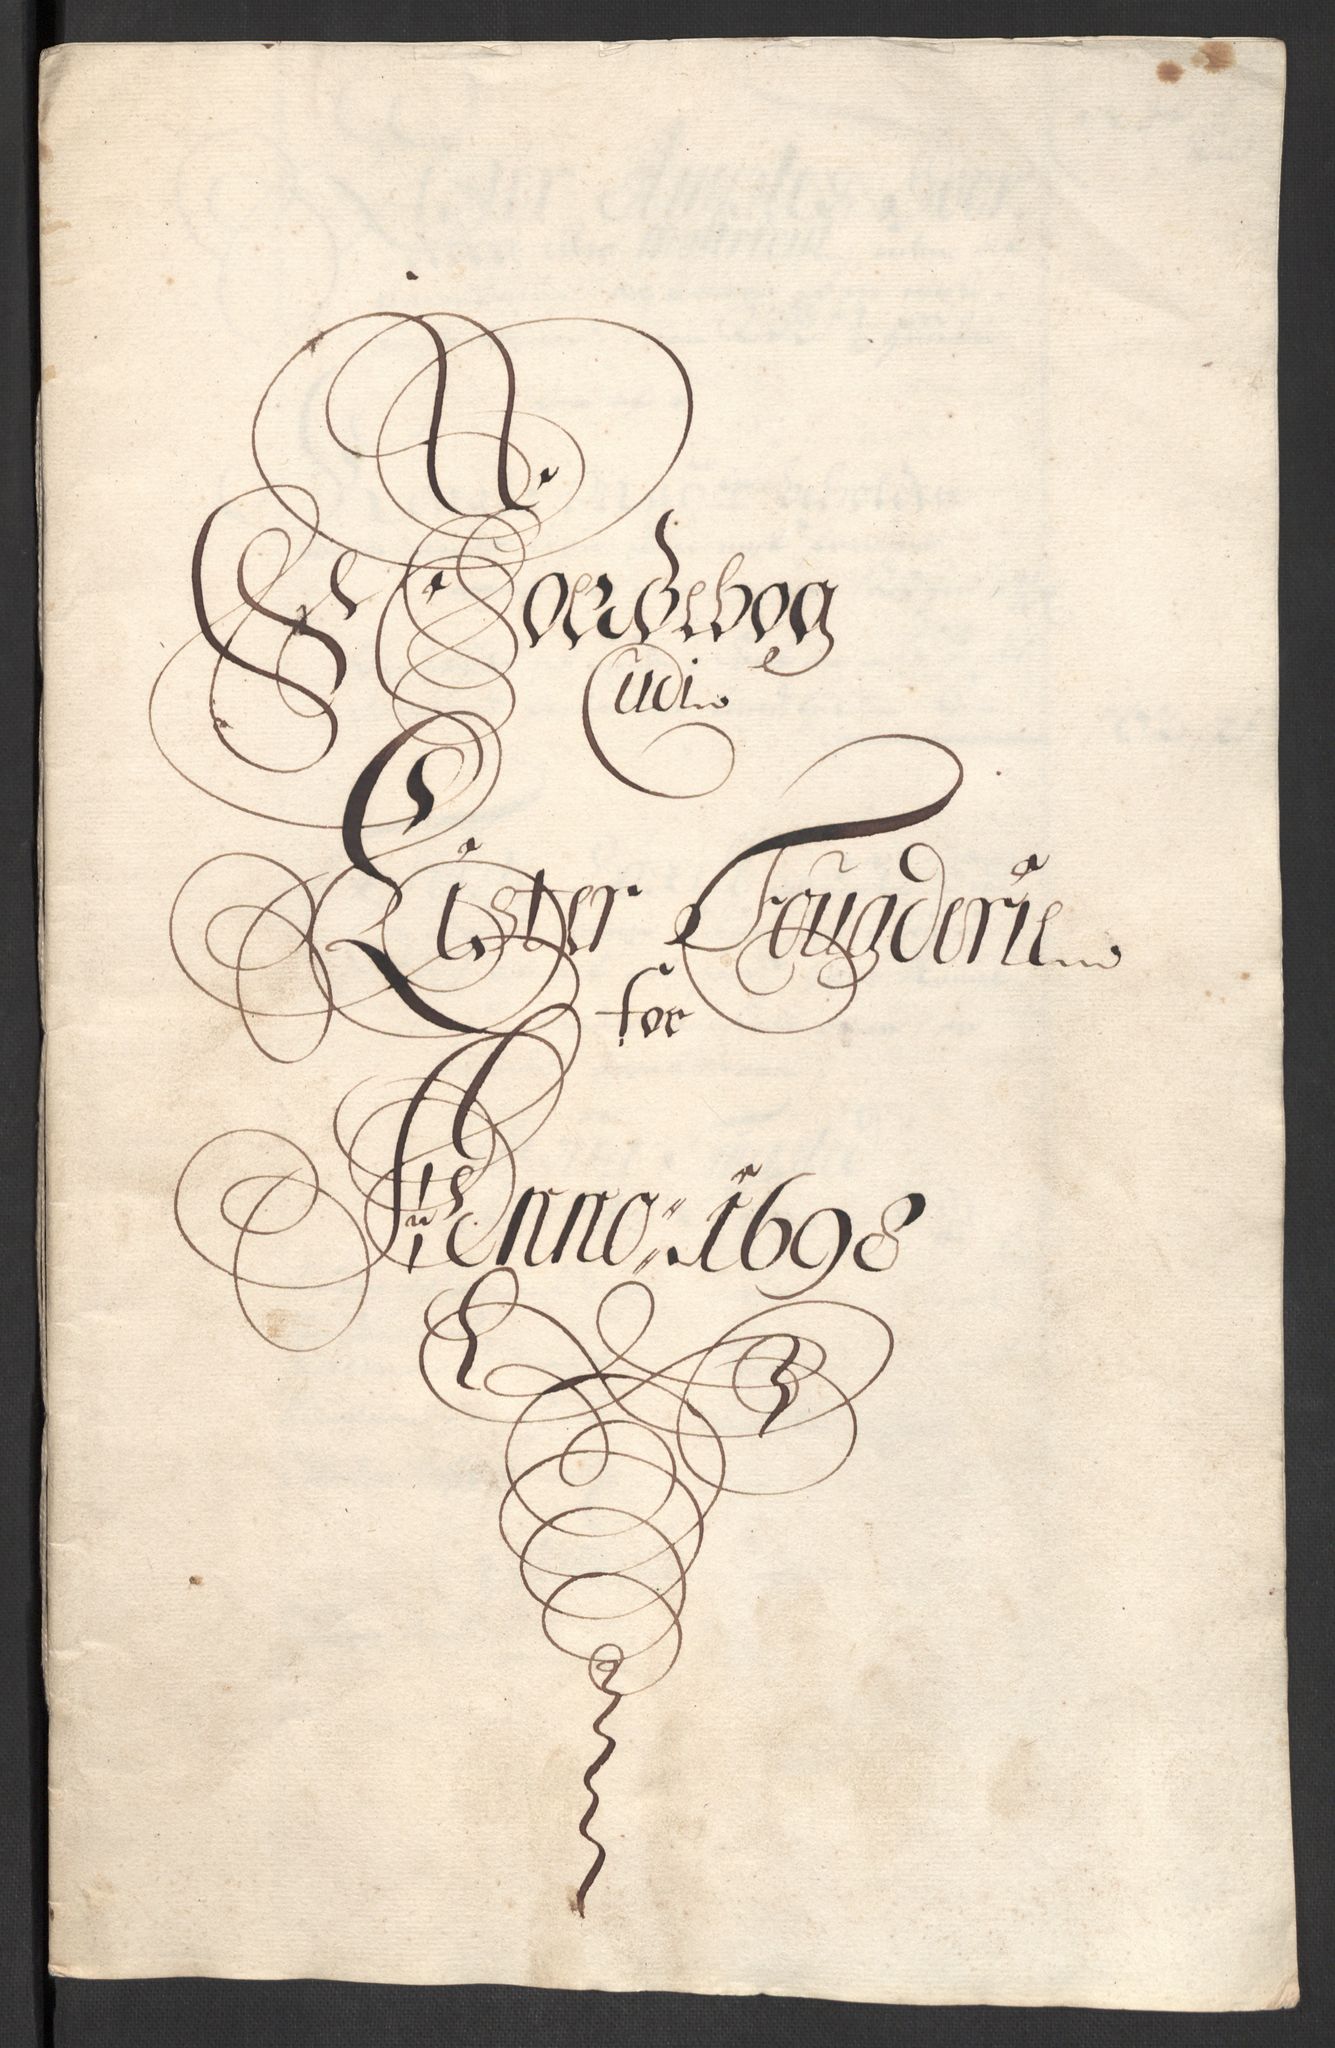 N.
Jordebog
Udi
Lister Fougderie
for
Anno: 1698